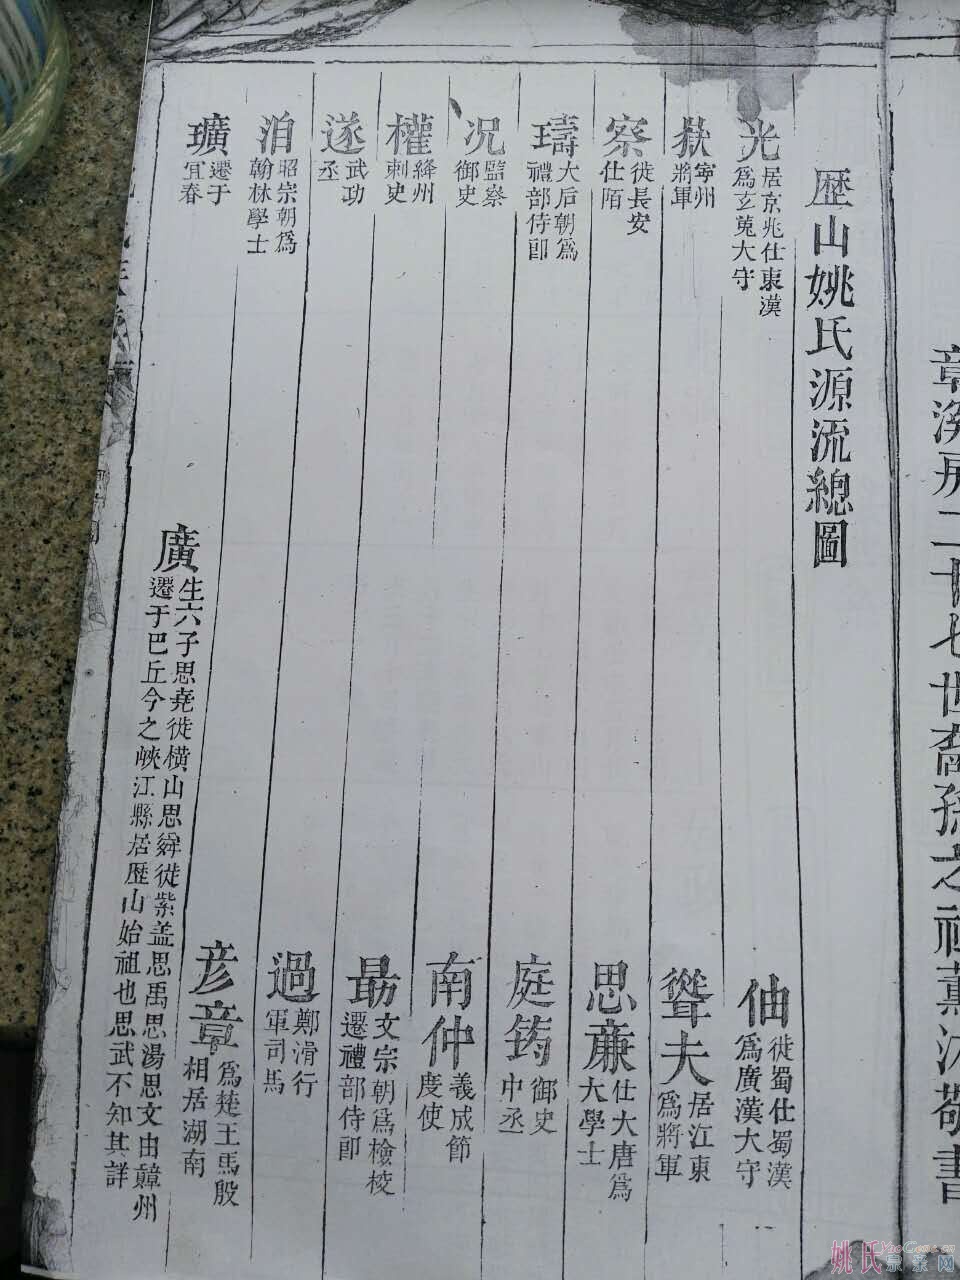 章溪房二十七世裔孫之
敬書
歷山姚氏源流總圖
光 居京兆仕東漢
爲玄菟大守
伷 徙蜀仕蜀漢
爲廣漢大守
㹤 寜州
將軍
聳夫 居江東
爲將軍
察 徙長安
仕陌
思亷 仕大唐爲
大學士
璹 大后朝爲
禮部侍郎
庭筠 御史
中丞
况 監察
御史
南仲 義成節
度使
權 絳州
刺史
最 文宗朝爲檢校
遷禮部侍郎
遂 武功
丞
過 鄭滑行
軍司馬
洎 昭宗朝爲
翰林學士
彦章 爲楚王馬殷
相居湖南
璸 遷于
冝春
廣 生六子思堯徙橫山思舜徙紫盖思禹思湯思文由贛州
遷于巴丘今之峽江縣居歷山始祖也思武不知其詳
姚氏宗亲网